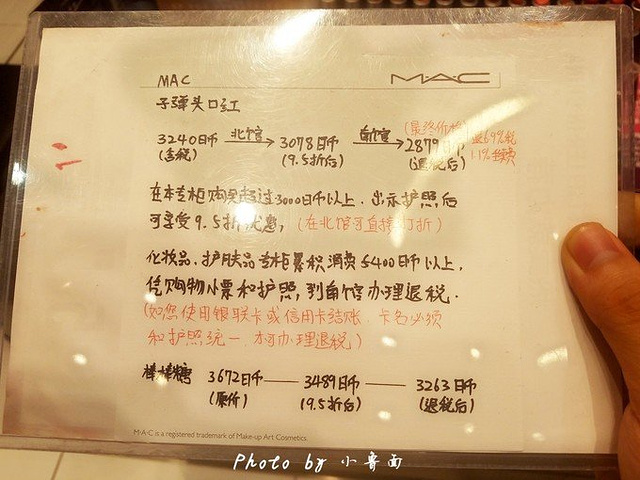 MAC M·A·C
子弹头口红
3240日币 北馆 3078日币 南馆 2879日币 (最终价格)
(含税) (9.5折后) (退税后)
在本专柜购买超过3000日币以上,出示护照后
可享受9.5折优惠, (在北馆可直接打折)
化妆品、护肤品专柜累积消费5400日币以上,
凭购物小票和护照,到南馆办理退税.
(如您使用银联卡或信用卡结账 卡名必须
和护照统一 才可办理退税)
棒棒糖 3672日币 — 3489日币 — 3263日币
(原价) (9.5折后) (退税后)
M·A·C is a registered trademark of Make-up Art Cosmetics.
Photo by 小青面